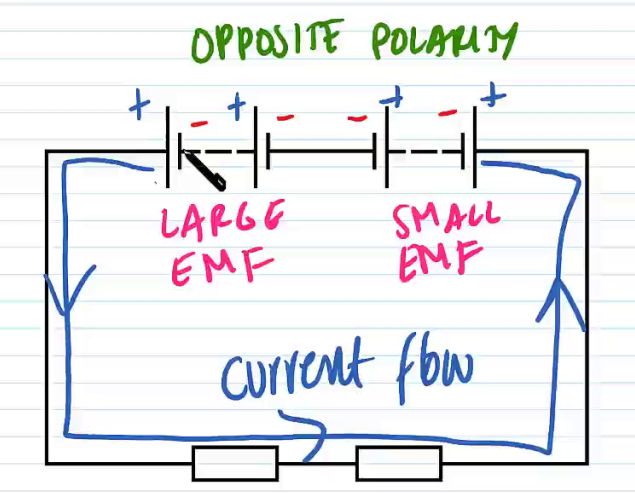 OPPOSITE POLARITY
+ - + - - + - +
LARGE EMF
SMALL EMF
current flow